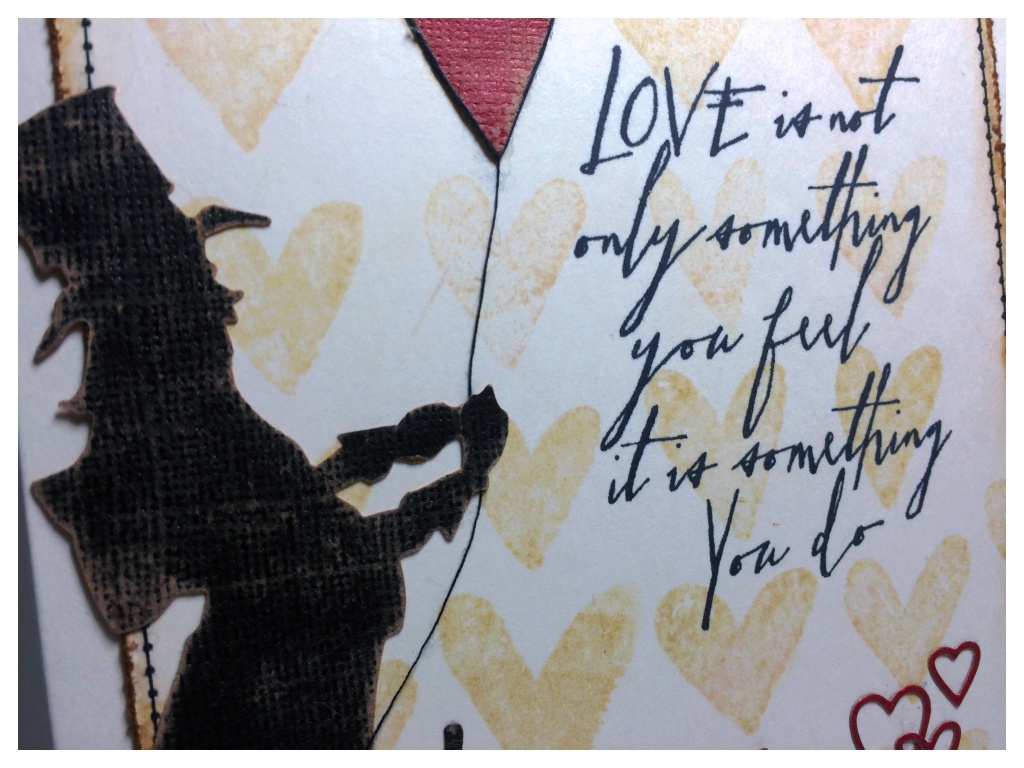 LOVE is not
only something
you feel
it is something
You do